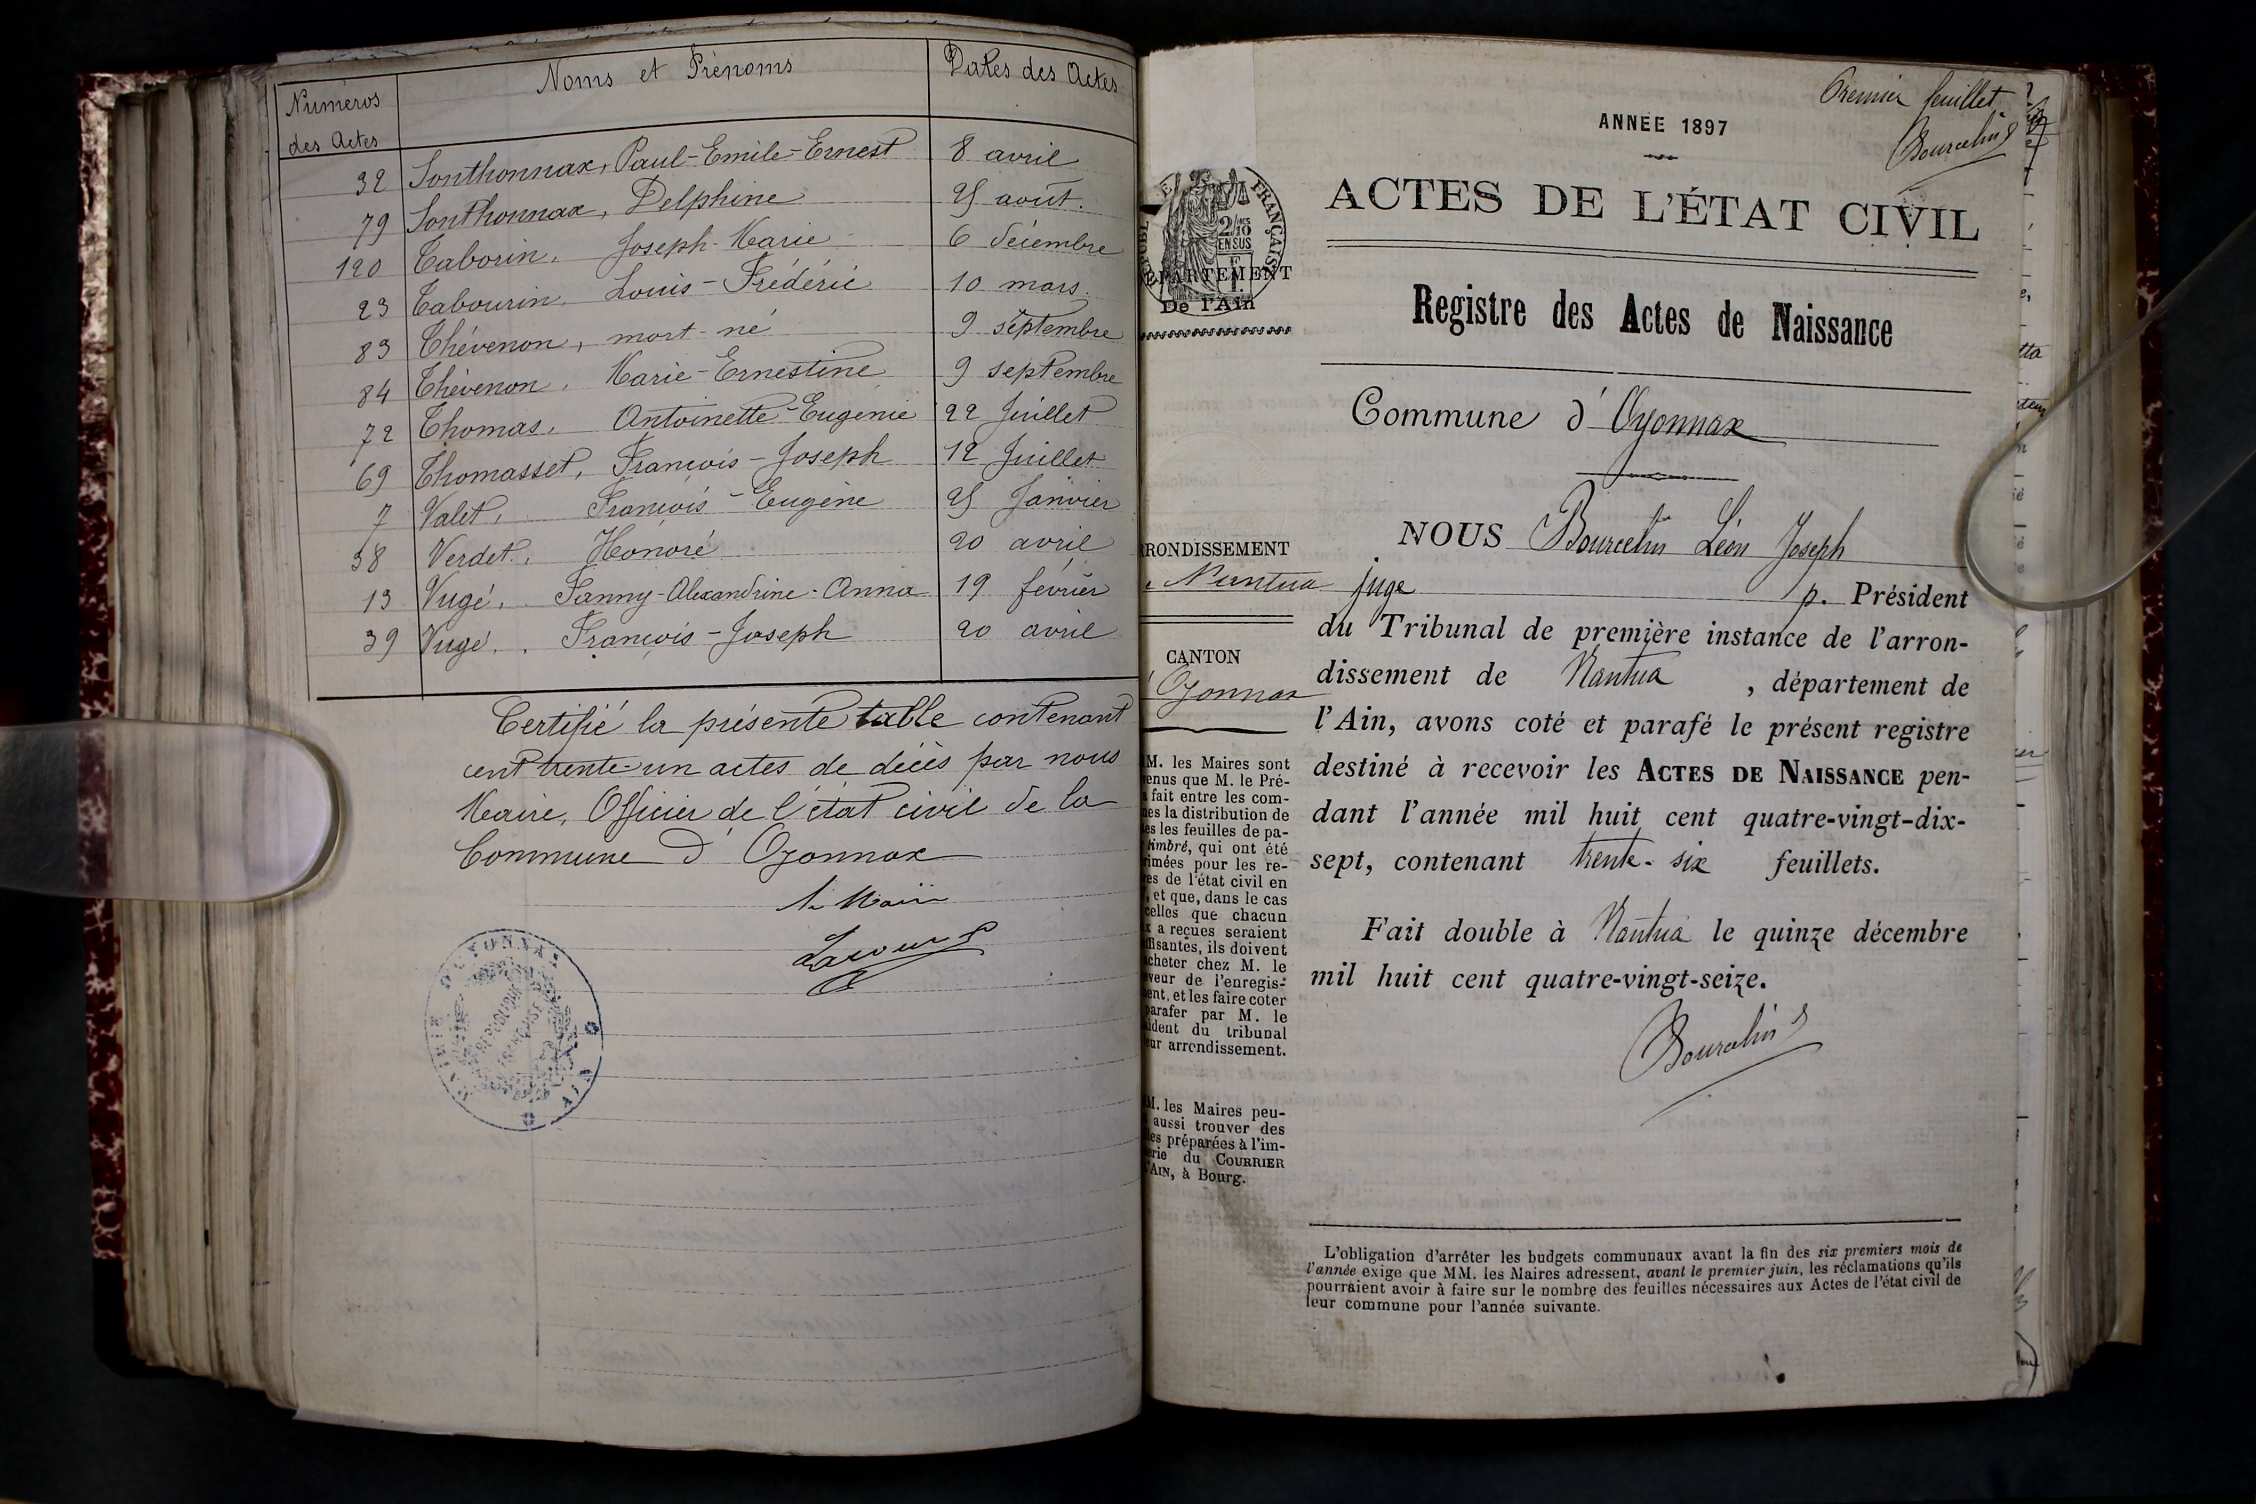 Numéros des Actes Noms et Prénoms Dates des Actes
32 Sonthonnax, Paul-Emile-Ernest 8 avril
79 Sonthonnax, Delphine 25 août.
120 Taborin, Joseph-Marie 6 décembre
23 Tabourin, Louis-Frédéric 10 mars.
83 Thévenon, mort-né 9 septembre
84 Thévenon, Marie-Ernestine 9 septembre
72 Thomas, Antoinette-Eugénie 22 Juillet
69 Thomasset, François-Joseph 12 Juillet
7 Valet, François-Eugène 25 Janvier
38 Verdet, Honoré 20 avril
13 Vugé, Fanny-Alexandrine-Anna 19 février
39 Vugé, François-Joseph 20 avril
Certifié la présente table contenant
cent trente-un actes de décès par nous
Maire, Officier de l'état civil de la
Commune d'Oyonnax
Le Maire
MAIRIE D'OYONNAX
RÉPUBLIQUE FRANÇAISE
AIN
Premier feuillet
Bourcelin
ANNÉE 1897
ACTES DE L'ÉTAT CIVIL
Registre des Actes de Naissance
Commune d'Oyonnax
FRANÇAISE
2/10
EN SUS
DÉPARTEMENT
De l'Ain
RRONDISSEMENT
Nantua
CANTON
Oyonnax
M. les Maires sont
enus que M. le Pré-
fait entre les com-
es la distribution de
es les feuilles de pa-
timbré, qui ont été
rimées pour les re-
es de l'état civil en
, et que, dans le cas
celles que chacun
x a reçues seraient
ffisantes, ils doivent
cheter chez M. le
veur de l'enregis-
ent, et les faire coter
parafer par M. le
ident du tribunal
eur arrondissement.
M. les Maires peu-
aussi trouver des
les préparées à l'im-
erie du COURRIER
'AIN, à Bourg.
NOUS Bourcelin Léon Joseph
juge p. Président
du Tribunal de première instance de l'arron-
dissement de Nantua, département de
l'Ain, avons coté et parafé le présent registre
destiné à recevoir les ACTES DE NAISSANCE pen-
dant l'année mil huit cent quatre-vingt-dix-
sept, contenant trente-six feuillets.
Fait double à Nantua le quinze décembre
mil huit cent quatre-vingt-seize.
Bourcelin
L'obligation d'arrêter les budgets communaux avant la fin des six premiers mois de
l'année exige que MM. les Maires adressent, avant le premier juin, les réclamations qu'ils
pourraient avoir à faire sur le nombre des feuilles nécessaires aux Actes de l'état civil de
leur commune pour l'année suivante.